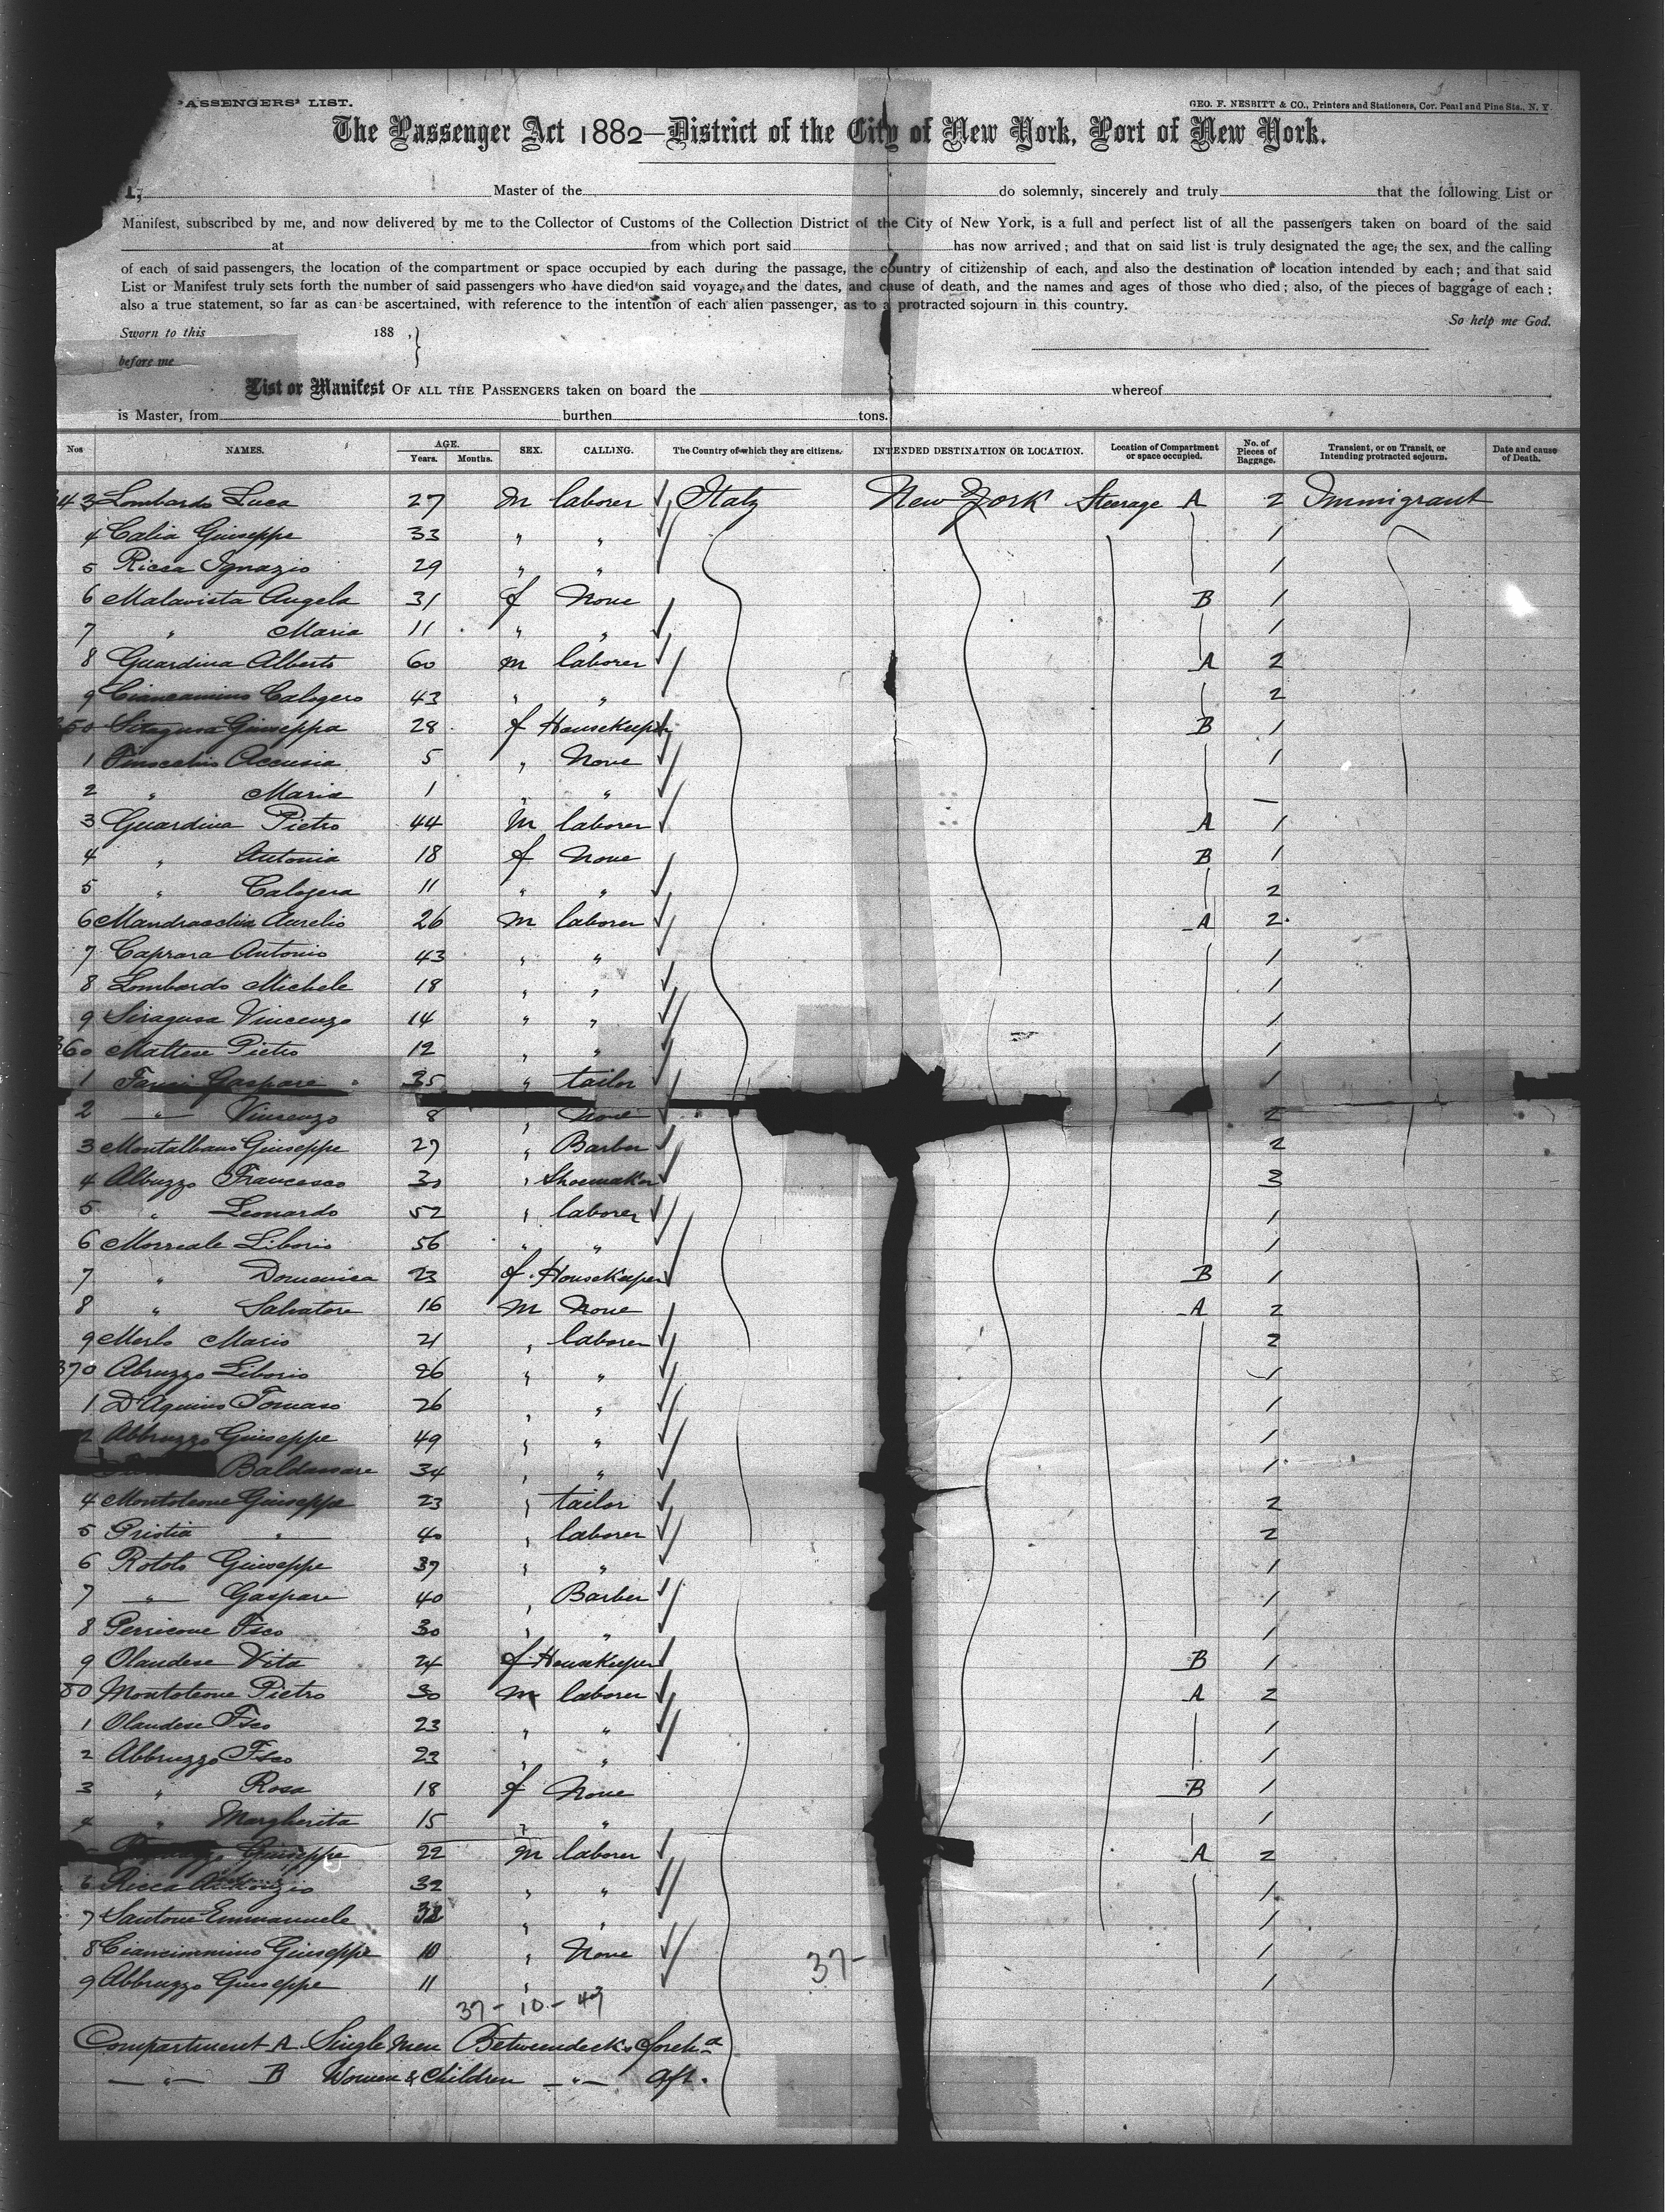 PASSENGERS' LIST.
GEO. F. NESBITT & CO., Printers and Stationers, Cor. Pearl and Pine Sts., N. Y.
The Passenger Act 1882—District of the City of New York, Port of New York.
I, Master of the do solemnly, sincerely and truly that the following List or
Manifest, subscribed by me, and now delivered by me to the Collector of Customs of the Collection District of the City of New York, is a full and perfect list of all the passengers taken on board of the said
at from which port said has now arrived; and that on said list is truly designated the age, the sex, and the calling
of each of said passengers, the location of the compartment or space occupied by each during the passage, the country of citizenship of each, and also the destination or location intended by each; and that said
List or Manifest truly sets forth the number of said passengers who have died on said voyage, and the dates, and cause of death, and the names and ages of those who died; also, of the pieces of baggage of each;
also a true statement, so far as can be ascertained, with reference to the intention of each alien passenger, as to a protracted sojourn in this country.
So help me God.
Sworn to this 188 ,
before me
List or Manifest OF ALL THE PASSENGERS taken on board the whereof
is Master, from burthen tons.
Nos NAMES. AGE. Years. Months. SEX. CALLING. The Country of which they are citizens. INTENDED DESTINATION OR LOCATION. Location of Compartment or space occupied. No. of Pieces of Baggage. Transient, or on Transit, or Intending protracted sojourn. Date and cause of Death.
43 Lombardo Luca 27 M laborer Italy New York Steerage A 2 Immigrant
4 Calia Giuseppe 33 " " 1
5 Ricca Ignazio 29 " " 1
6 Malavista Angela 31 f None B 1
7 " Maria 11 " " 1
8 Guardina Alberto 60 M laborer A 2
9 Ciancamino Calogero 43 " " 2
350 Siragusa Giuseppa 28 f Housekeeper B 1
1 Finocchio Accursia 5 " None 1
2 " Maria 1 " " —
3 Guardina Pietro 44 M laborer A 1
4 " Antonia 18 f None B 1
5 " Calogera 11 " " 2
6 Mandracchia Aurelio 26 M laborer A 2
7 Caprara Antonio 43 " " 1
8 Lombardo Michele 18 " " 1
9 Siragusa Vincenzo 14 " " 1
360 Maltese Pietro 12 " " 1
1 Gaspare 35 " tailor 1
2 " Vincenzo 8 " None 2
3 Montalbano Giuseppe 27 " Barber 2
4 Albuzzo Francesco 30 " Shoemaker 3
5 " Leonardo 52 " laborer 1
6 Morreale Liborio 56 " " 1
7 " Domenica 23 f Housekeeper B 1
8 " Salvatore 16 M None A 2
9 Merlo Mario 21 " laborer 2
370 Abruzzo Liborio 26 " " 1
1 D'Aquino Tomaso 26 " " 1
2 Abbruzzo Giuseppe 49 " " 1
Baldassare 34 " " 1
4 Montoleone Giuseppe 23 " tailor 2
5 Gristia " 40 " laborer 2
6 Rotolo Giuseppe 37 " " 1
7 " Gaspare 40 " Barber 1
8 Perricone Fsco 30 " " 1
9 Olandese Vita 24 f Housekeeper B 1
80 Montoleone Pietro 30 M laborer A 2
1 Olandese Fsco 23 " " 1
2 Abbruzzo Fsco 23 " " 1
3 " Rosa 18 f None B 1
4 " Margherita 15 " " 1
Giuseppe 22 M laborer A 2
6 Ricca 32 " " 1
7 Santoue Emmanuele 38 " " 1
8 Ciancimmino Giuseppe 10 " None 1
9 Abbruzzo Giuseppe 11 " 1
37-
37 - 10 - 47
Compartment A Single Men Betweendecks Foreh
— " — B Women & Children — " — Aft.